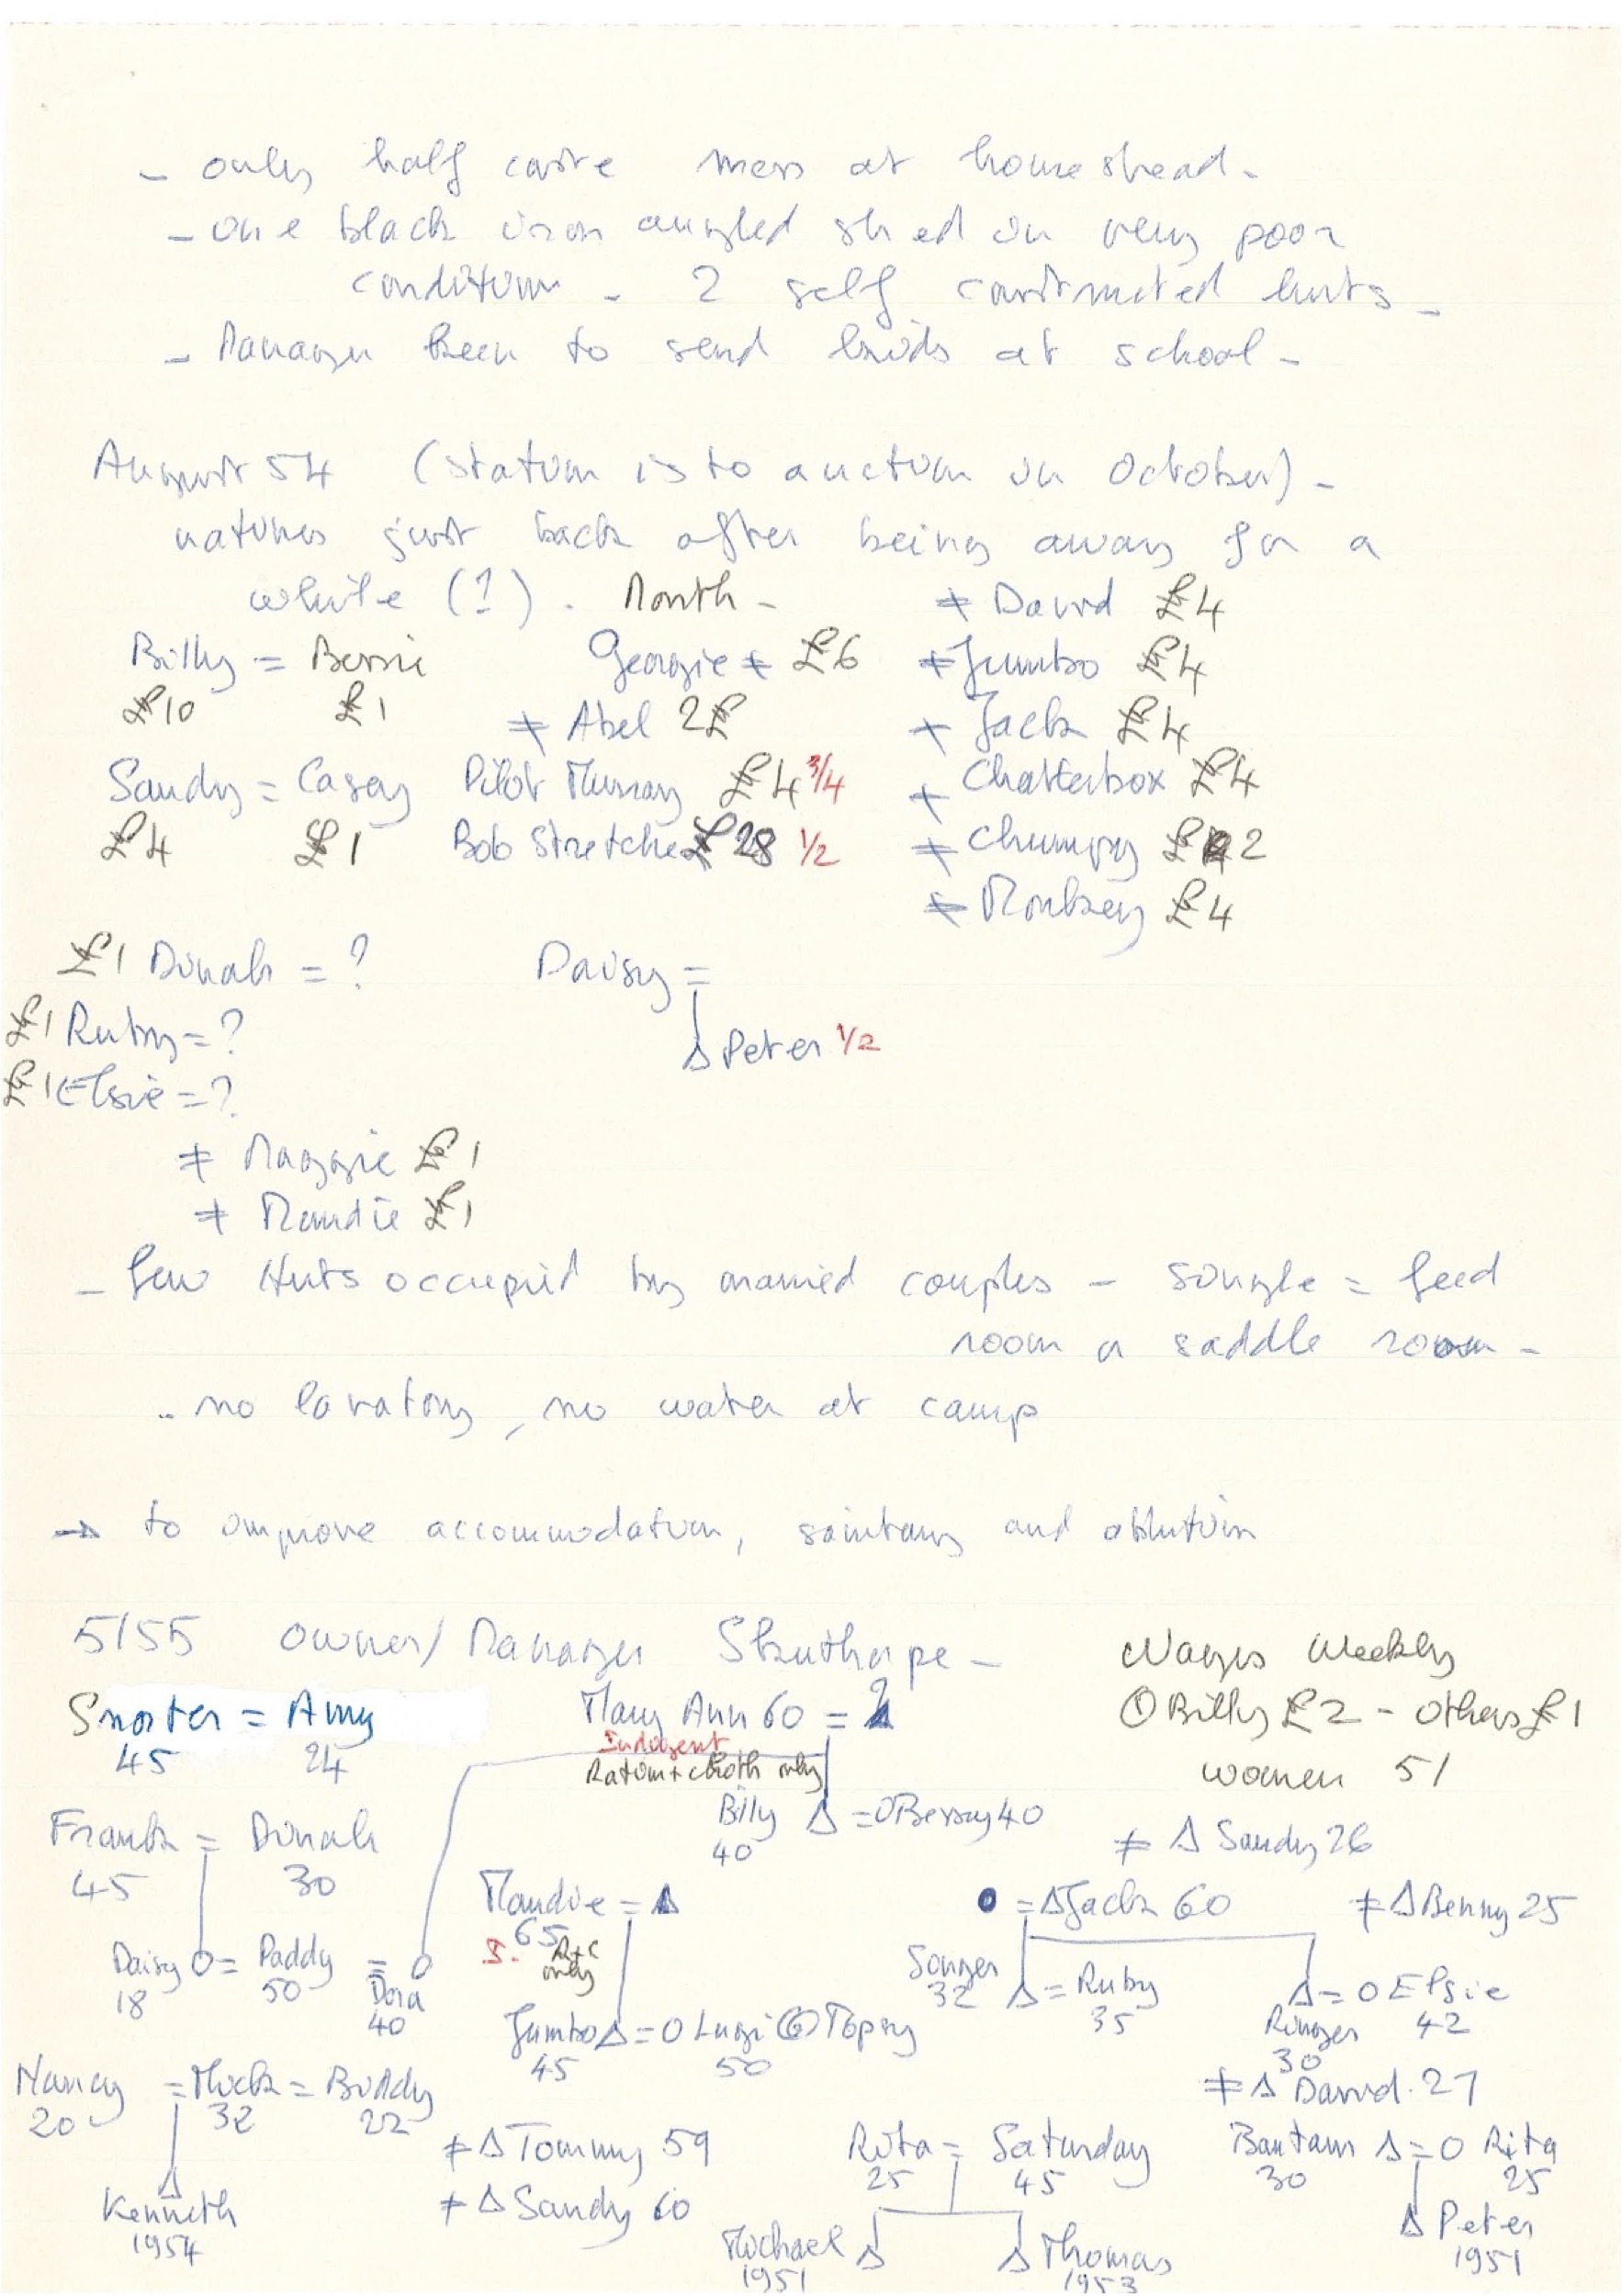 - only half caste mess at homestead -
- one black iron angled shed in very poor
condition - 2 self constructed huts -
- Manager keen to send kids at school -
August 54 (station is to auction in October) -
natives just back after being away for a
while (?). Month -
≠ David £4
Billy = Bessie Georgie ≠ £6 ≠ Jumbo £4
£10 £1 ≠ Abel 2£ ≠ Jack £4
Sandy = Casey Pilot Murray £4 3/4 ≠ Chatterbox £4
£4 £1 Bob Stretcher £28 1/2 ≠ Chumpy £2
≠ Monkey £4
£1 Dinah = ? Daisy =
£1 Ruby = ? Δ Peter 1/2
£1 Elsie = ?
≠ Maggie £1
≠ Maudie £1
- few Huts occupied by married couples - single = feed
room or saddle room -
- no lavatory, no water at camp
→ to improve accommodation, sanitary and ablution
5/55 Owner/Manager Skuthorpe - Wages Weekly
Snorter = Amy Mary Ann 60 = ① Billy £2 - others £1
45 24 Indigent women 5/
Ration + cloth only
Frank = Dinah Billy Δ = O Bessy 40
45 30 40 ≠ Δ Sandy 26
Maudie = Δ = Δ Jack 60 ≠ Δ Benny 25
65
I. R+C only
Daisy O = Paddy = O Dora Songer Δ = Ruby Δ = O Elsie
18 50 40 32 35 Ringer 42
30
Jumbo Δ = O Lugi @ Topsy
45 50
Nancy = Mick = Biddy ≠ Δ David 27
20 32 22
≠ Δ Tommy 59 Rita = Saturday Bantam Δ = O Rita
25 45 30 25
Δ ≠ Δ Sandy 60
Kenneth Michael Δ Δ Thomas Δ Peter
1954 1951 1953 1951